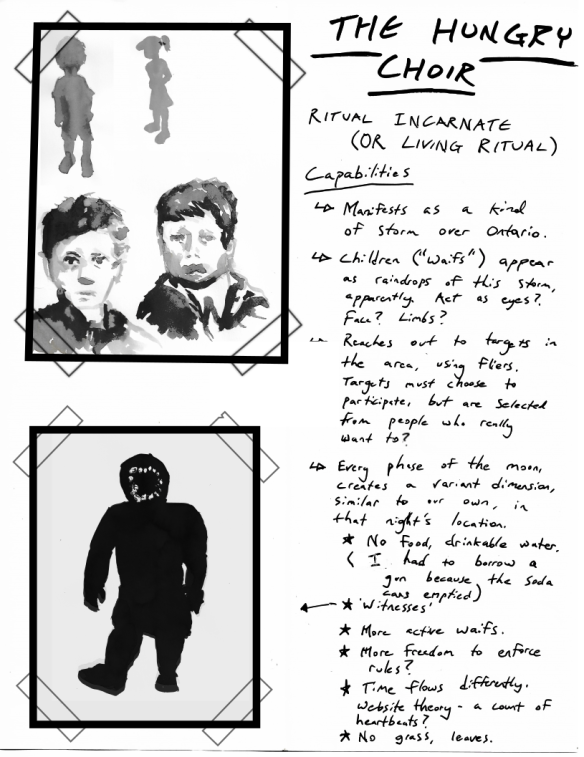 THE HUNGRY
CHOIR
RITUAL INCARNATE
(OR LIVING RITUAL)
Capabilities
↳ Manifests as a kind
of storm over Ontario.
↳ Children ("waifs") appear
as raindrops of this storm,
apparently. Act as eyes?
Face? Limbs?
Reaches out to targets in
the area, using fliers.
Targets must choose to
participate, but are selected
from people who really
want to?
↳ Every phase of the moon,
creates a variant dimension,
similar to our own, in
that night's location.
★ No food, drinkable water.
( I had to borrow a
gon because the soda
cans emptied)
★ 'Witnesses'
★ More active waifs.
★ More freedom to enforce
rules?
★ Time flows differently.
Website theory - a count of
heartbeats?
★ No grass, leaves.